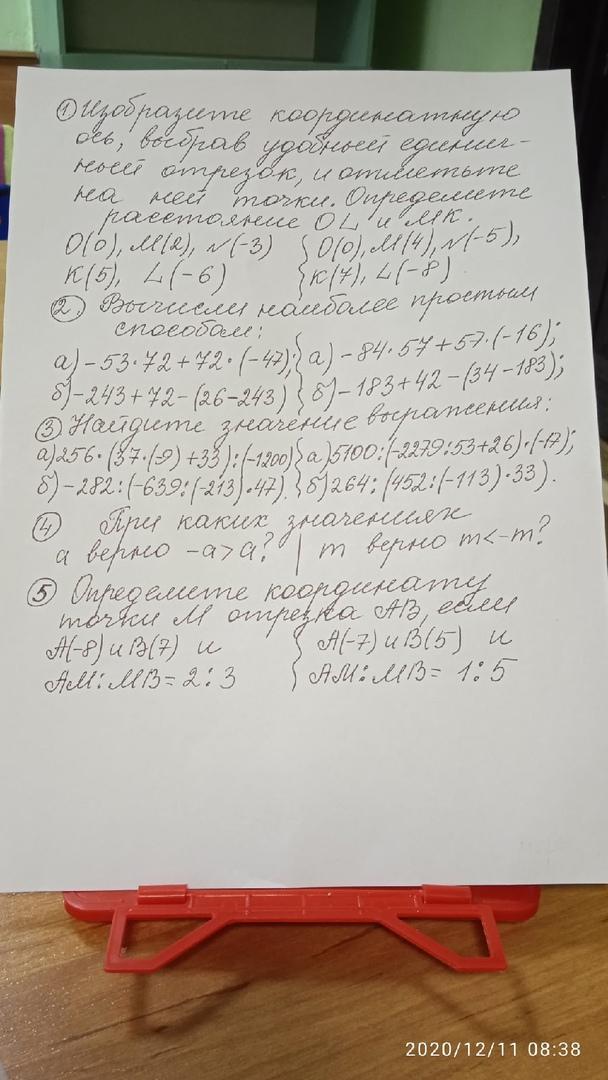 ① Изобразите координатную
ось, выбрав удобный единич-
ный отрезок, и отметьте
на ней точки. Определите
расстояние OL и MK.
O(0), M(2), N(-3) { O(0), M(4), N(-5),
K(5), L(-6) { K(7), L(-8)
②. Вычисли наиболее простым
способом:
а) -53·72+72·(-47); { а) -84·57+57·(-16);
б) -243+72-(26-243) { б) -183+42-(34-183);
③ Найдите значение выражения:
а) 256·(37·(-9)+33):(-1200) { а) 5100:(-2279:53+26)·(-17);
б) -282:(-639:(-213)·47). { б) 264:(452:(-113)·33).
④ При каких значениях
а верно -a>a? | m верно m<-m?
⑤ Определите координату
точки M отрезка AB, если
A(-8) и B(7) и { A(-7) и B(5) и
AM:MB=2:3 { AM:MB= 1:5
2020/12/11 08:38